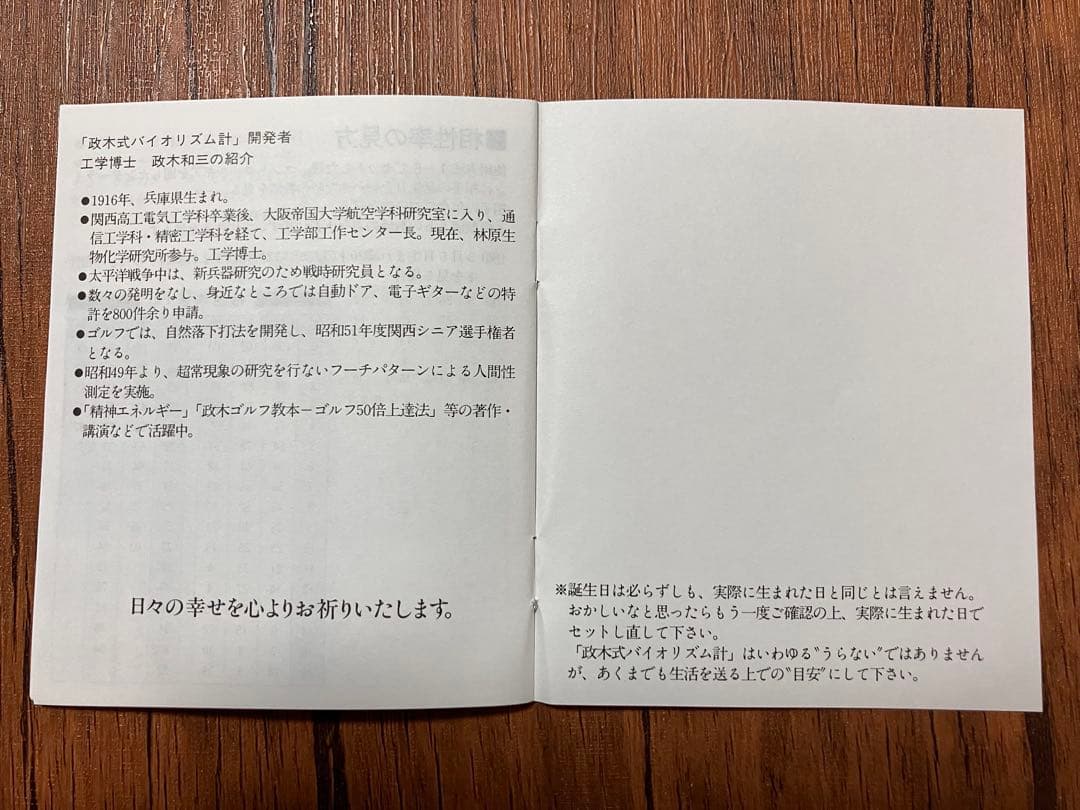 「政木式バイオリズム計」開発者
工学博士　政木和三の紹介
●1916年、兵庫県生まれ。
●関西高工電気工学科卒業後、大阪帝国大学航空学科研究室に入り、通
信工学科・精密工学科を経て、工学部工作センター長。現在、林原生
物化学研究所参与。工学博士。
●太平洋戦争中は、新兵器研究のため戦時研究員となる。
●数々の発明をなし、身近なところでは自動ドア、電子ギターなどの特
許を800件余り申請。
●ゴルフでは、自然落下打法を開発し、昭和51年度関西シニア選手権者
となる。
●昭和49年より、超常現象の研究を行ないフーチパターンによる人間性
測定を実施。
●「精神エネルギー」「政木ゴルフ教本－ゴルフ50倍上達法」等の著作・
講演などで活躍中。
日々の幸せを心よりお祈りいたします。
※誕生日は必らずしも、実際に生まれた日と同じとは言えません。
おかしいなと思ったらもう一度ご確認の上、実際に生まれた日で
セットし直して下さい。
「政木式バイオリズム計」はいわゆる〝うらない〟ではありません
が、あくまでも生活を送る上での〝目安〟にして下さい。
■相性率の見方